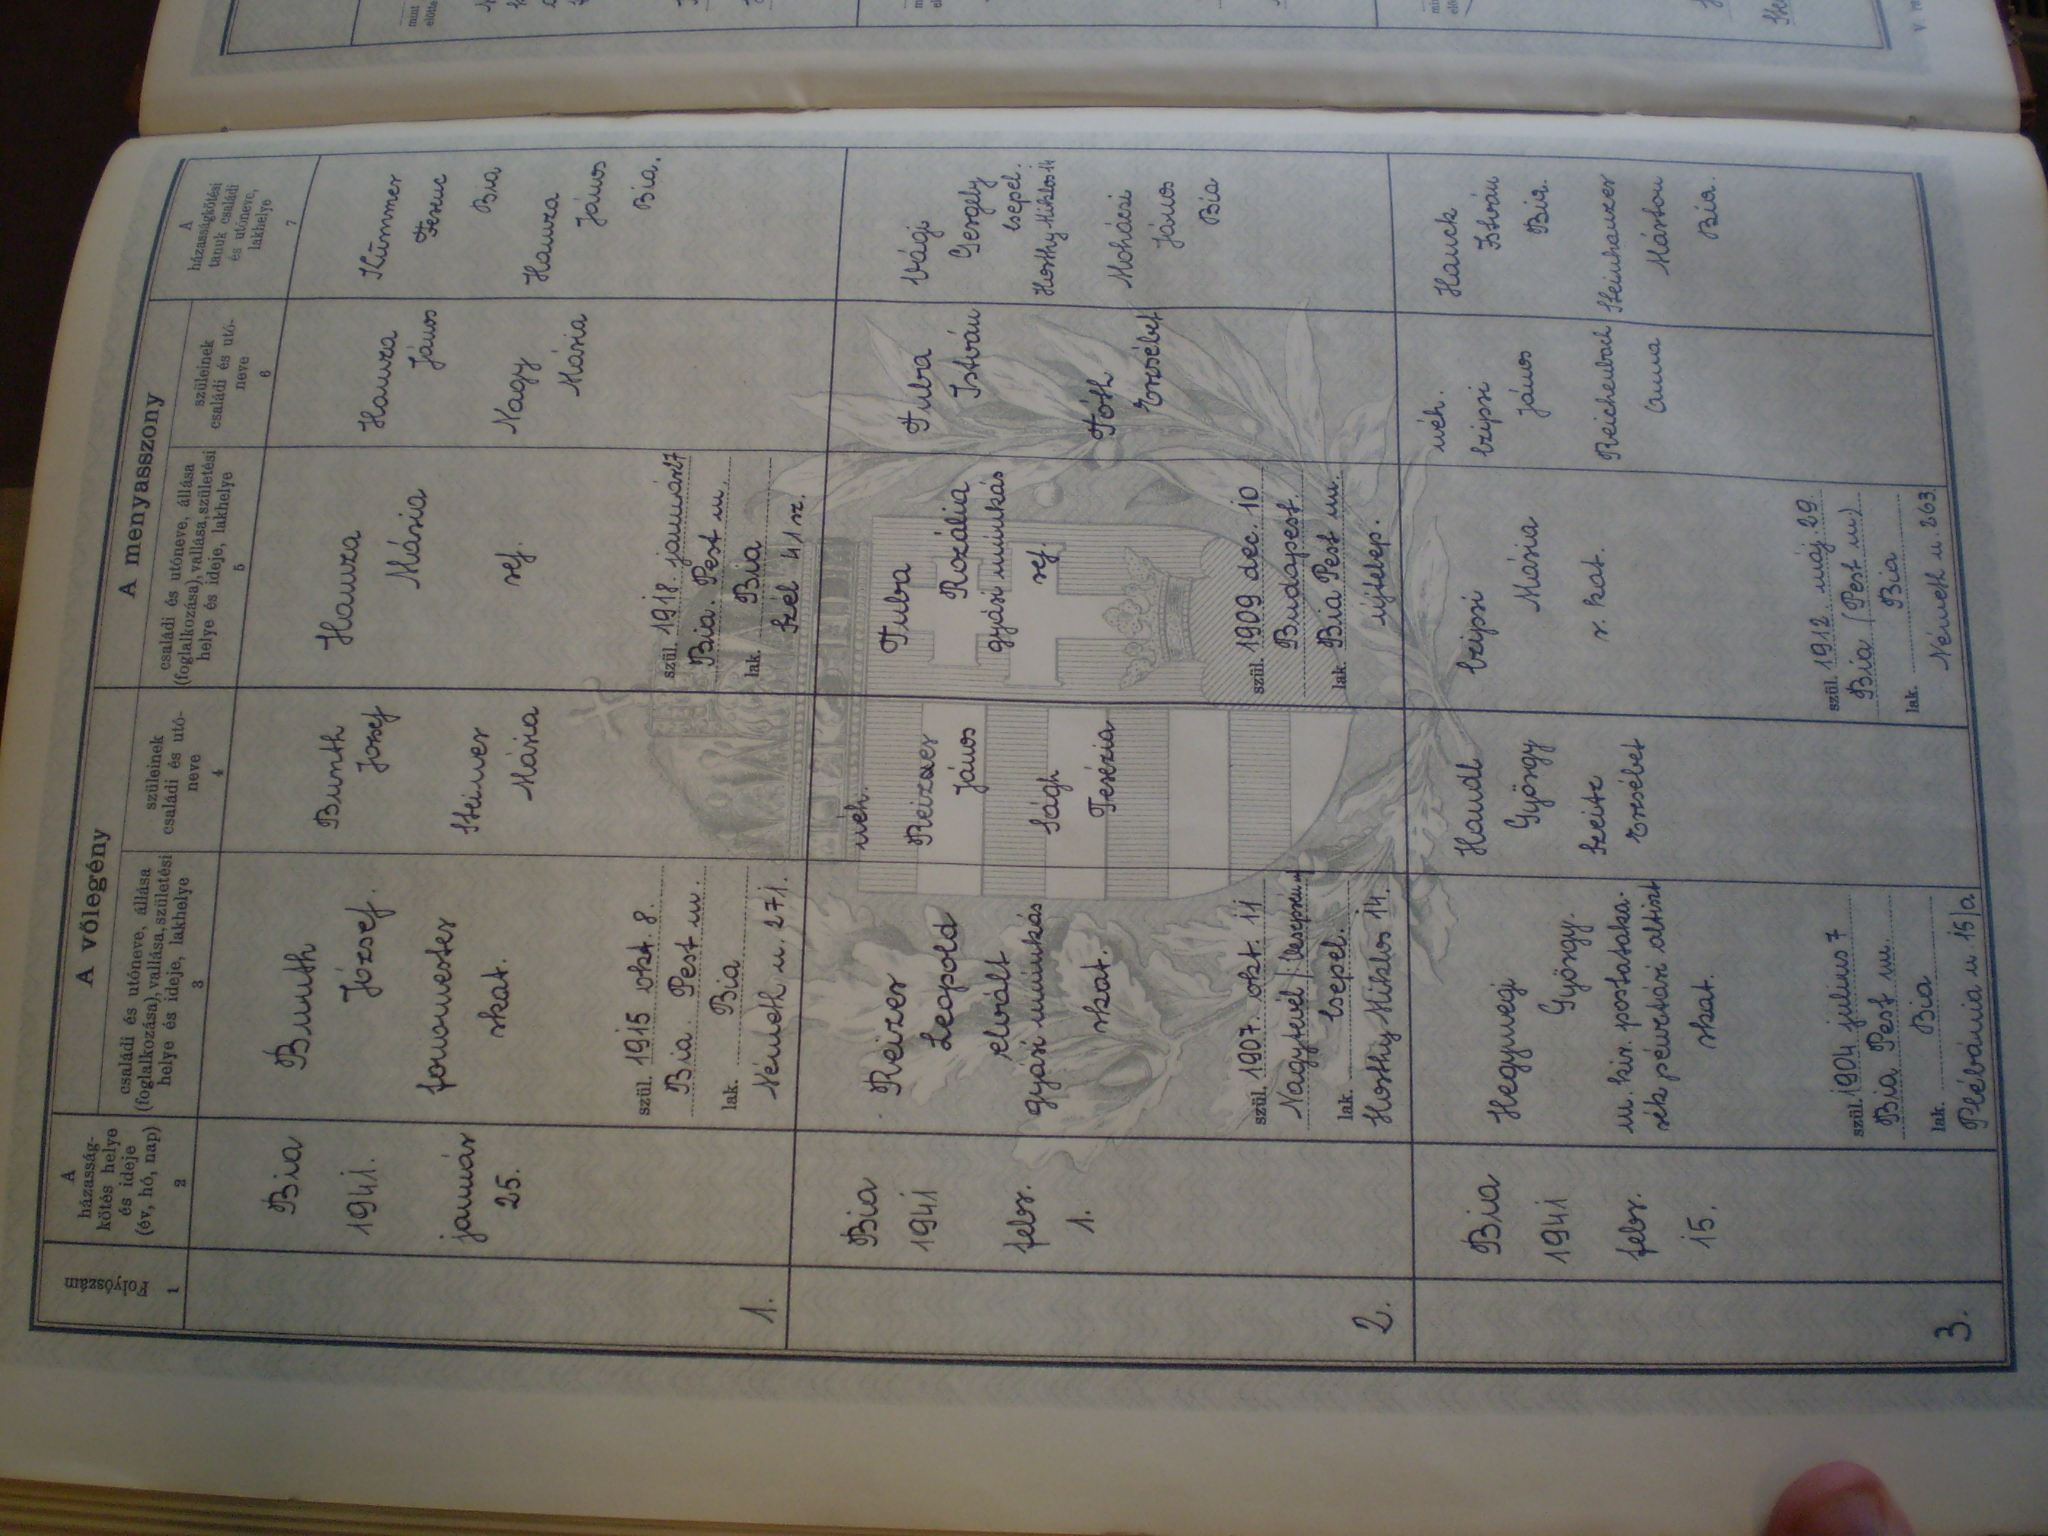 A vőlegény
A menyasszony
Folyószám
A
házasság-
kötés helye
és ideje
(év, hó, nap)
családi és utóneve, állása
(foglalkozása), vallása, születési
helye és ideje, lakhelye
szüleinek
családi és utó-
neve
családi és utóneve, állása
(foglalkozása), vallása, születési
helye és ideje, lakhelye
szüleinek
családi és utó-
neve
A
házasságkötési
tanuk családi
és utóneve,
lakhelye
1
2
3
4
5
6
7
1.
Bia
1941.
január
25.
Bunth
József.
fonómester
rkat.
szül. 1915 okt. 8.
Bia. Pest m.
lak. Bia
Németh u. 271.
Bunth
József
Steiner
Mária
Hanza
Mária
ref.
szül. 1918 január 27
Bia. Pest m.
lak. Bia
Szél 41 sz.
Hanza
János
Nagy
Mária
Kummer
Ferenc
Bia
Hanza
János
Bia.
2.
Bia
1941
febr.
1.
Reizer
Leopold
elvált
gyári munkás
rkat.
szül. 1907. okt. 11
lak. Csepel.
Horthy Miklós 14.
néh.
Reizer
János
Ságh
Terézia
Tuba
Rozália
gyári munkás
ref.
szül. 1909 dec. 10
Budapest.
lak. Bia Pest m.
újtelep.
Tuba
István
Tóth
Erzsébet
Vági
Gergely
Csepel.
Horthy Miklós 14
Mohácsi
János
Bia
3.
Bia
1941
febr.
15.
Hegyvegi
György.
m. kir. postataka-
rékpénztári altiszt
rkat.
szül. 1904 julius 7
Bia Pest m.
lak. Bia
Plébánia u 15/a
Handl
György
Szeitz
Erzsébet
Czipszi
Mária
r. kat.
szül. 1912 máj. 29.
Bia (Pest m)
lak. Bia
Németh u. 263.
néh.
Czipszi
János
Reichenbach
Anna
Hauck
István
Bia.
Steinhauzer
Márton
Bia.